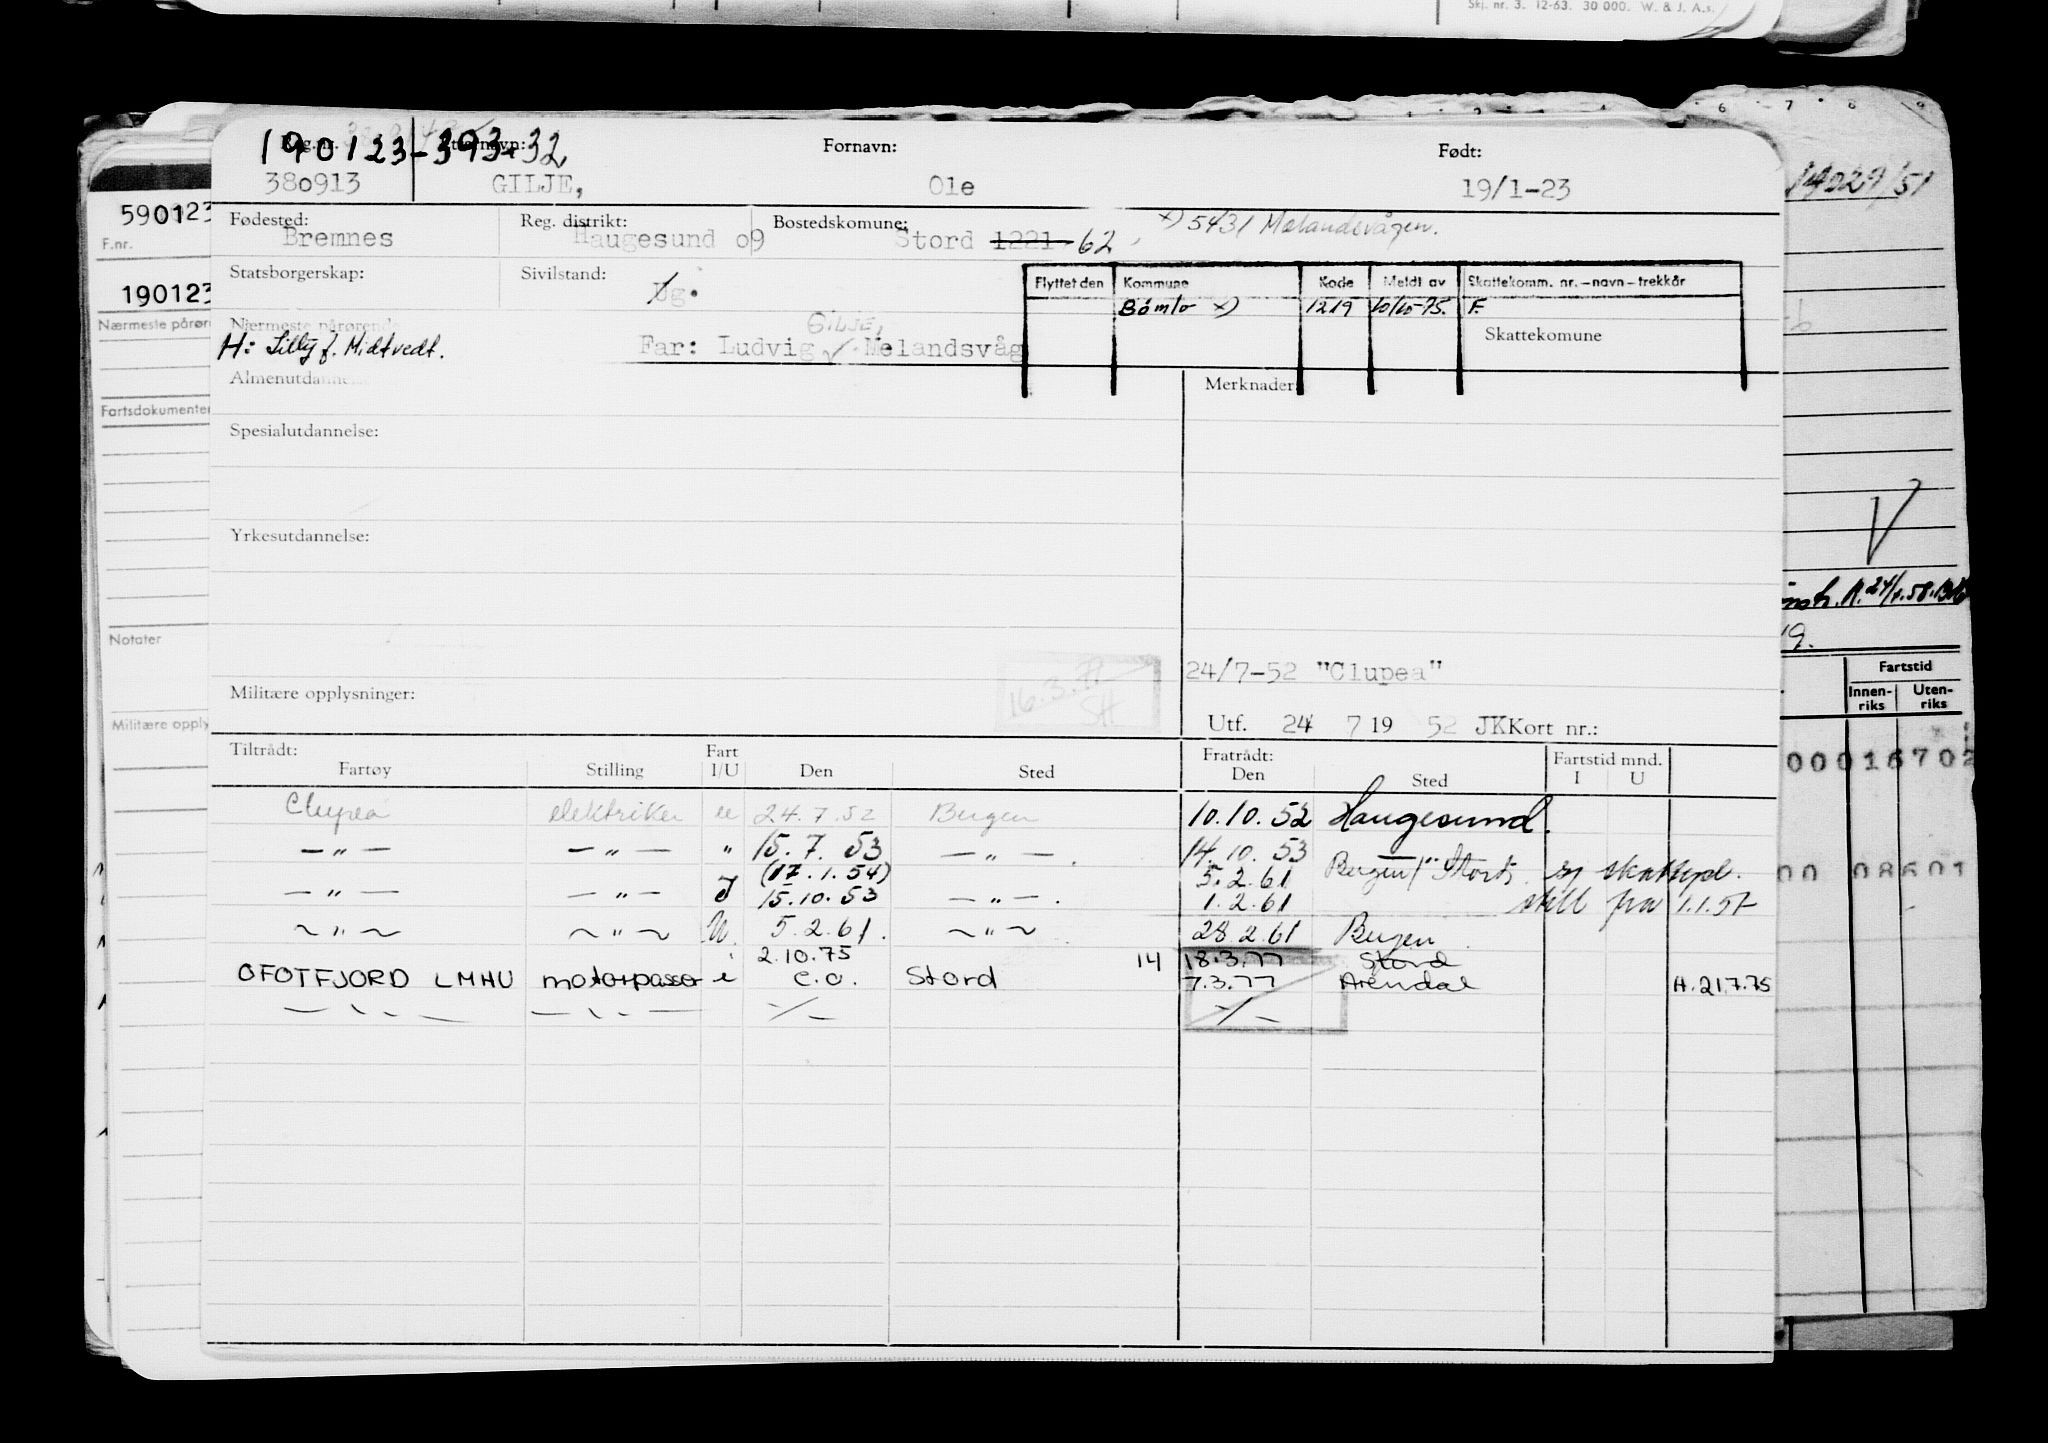 Skj. nr. 3. 12-63. 30 000. W. & J. A.s.
6 7 8 9
190123-393.32
Reg.nr. Etternavn: Fornavn: Født:
380913 GILJE, Ole 19/1-23
14029/51
590123
F.nr.
190123
Nærmeste pårør
Fartsdokumenter
Notater
Militære opply
Fødested: Reg. distrikt: Bostedskomune: x) 5431 Melandsvågen.
Bremnes Haugesund o9 Stord 1221 62
Statsborgerskap: Sivilstand:
Ug.
Flyttet den Kommune Kode Meldt av Skattekomm. nr. – navn – trekkår
Bømlo x) 1219 10/10-75. F.
Nærmeste pårørende GILJE, Skattekomune
H: Lilly f. Midtvedt. Far: Ludvig Melandsvåg
Almenutdannelse Merknader:
Spesialutdannelse:
Yrkesutdannelse:
24/7-52 "Clupea"
Militære opplysninger: 16.3.77 SH
Utf. 24 7 19 52 JK Kort nr.:
19.
Fartstid
Innen-riks Uten-riks
000 16702
00 08601
Tiltrådt: Fart Fratrådt: Fartstid mnd.
Fartøy Stilling I/U Den Sted Den Sted I U
Clupea elektriker u 24.7.52 Bergen 10.10.52 Haugesund.
— " — — " — " 15.7.53 — " — . 14.10.53 — " —
(17.1.54) 5.2.61 Bergen/Stord sj skattepl.
— " — — " — I 15.10.53 — " — . 1.2.61 still fra 1.1.57
~ " ~ ~ " ~ U. 5.2.61. ~ " ~ 28.2.61 Bergen
i 2.10.75 14 18.3.77 Stord
OFOTFJORD LMHU motorpasser i e.o. Stord 7.3.77 Arendal H.21.7.75
— " — — " — -/- -/-